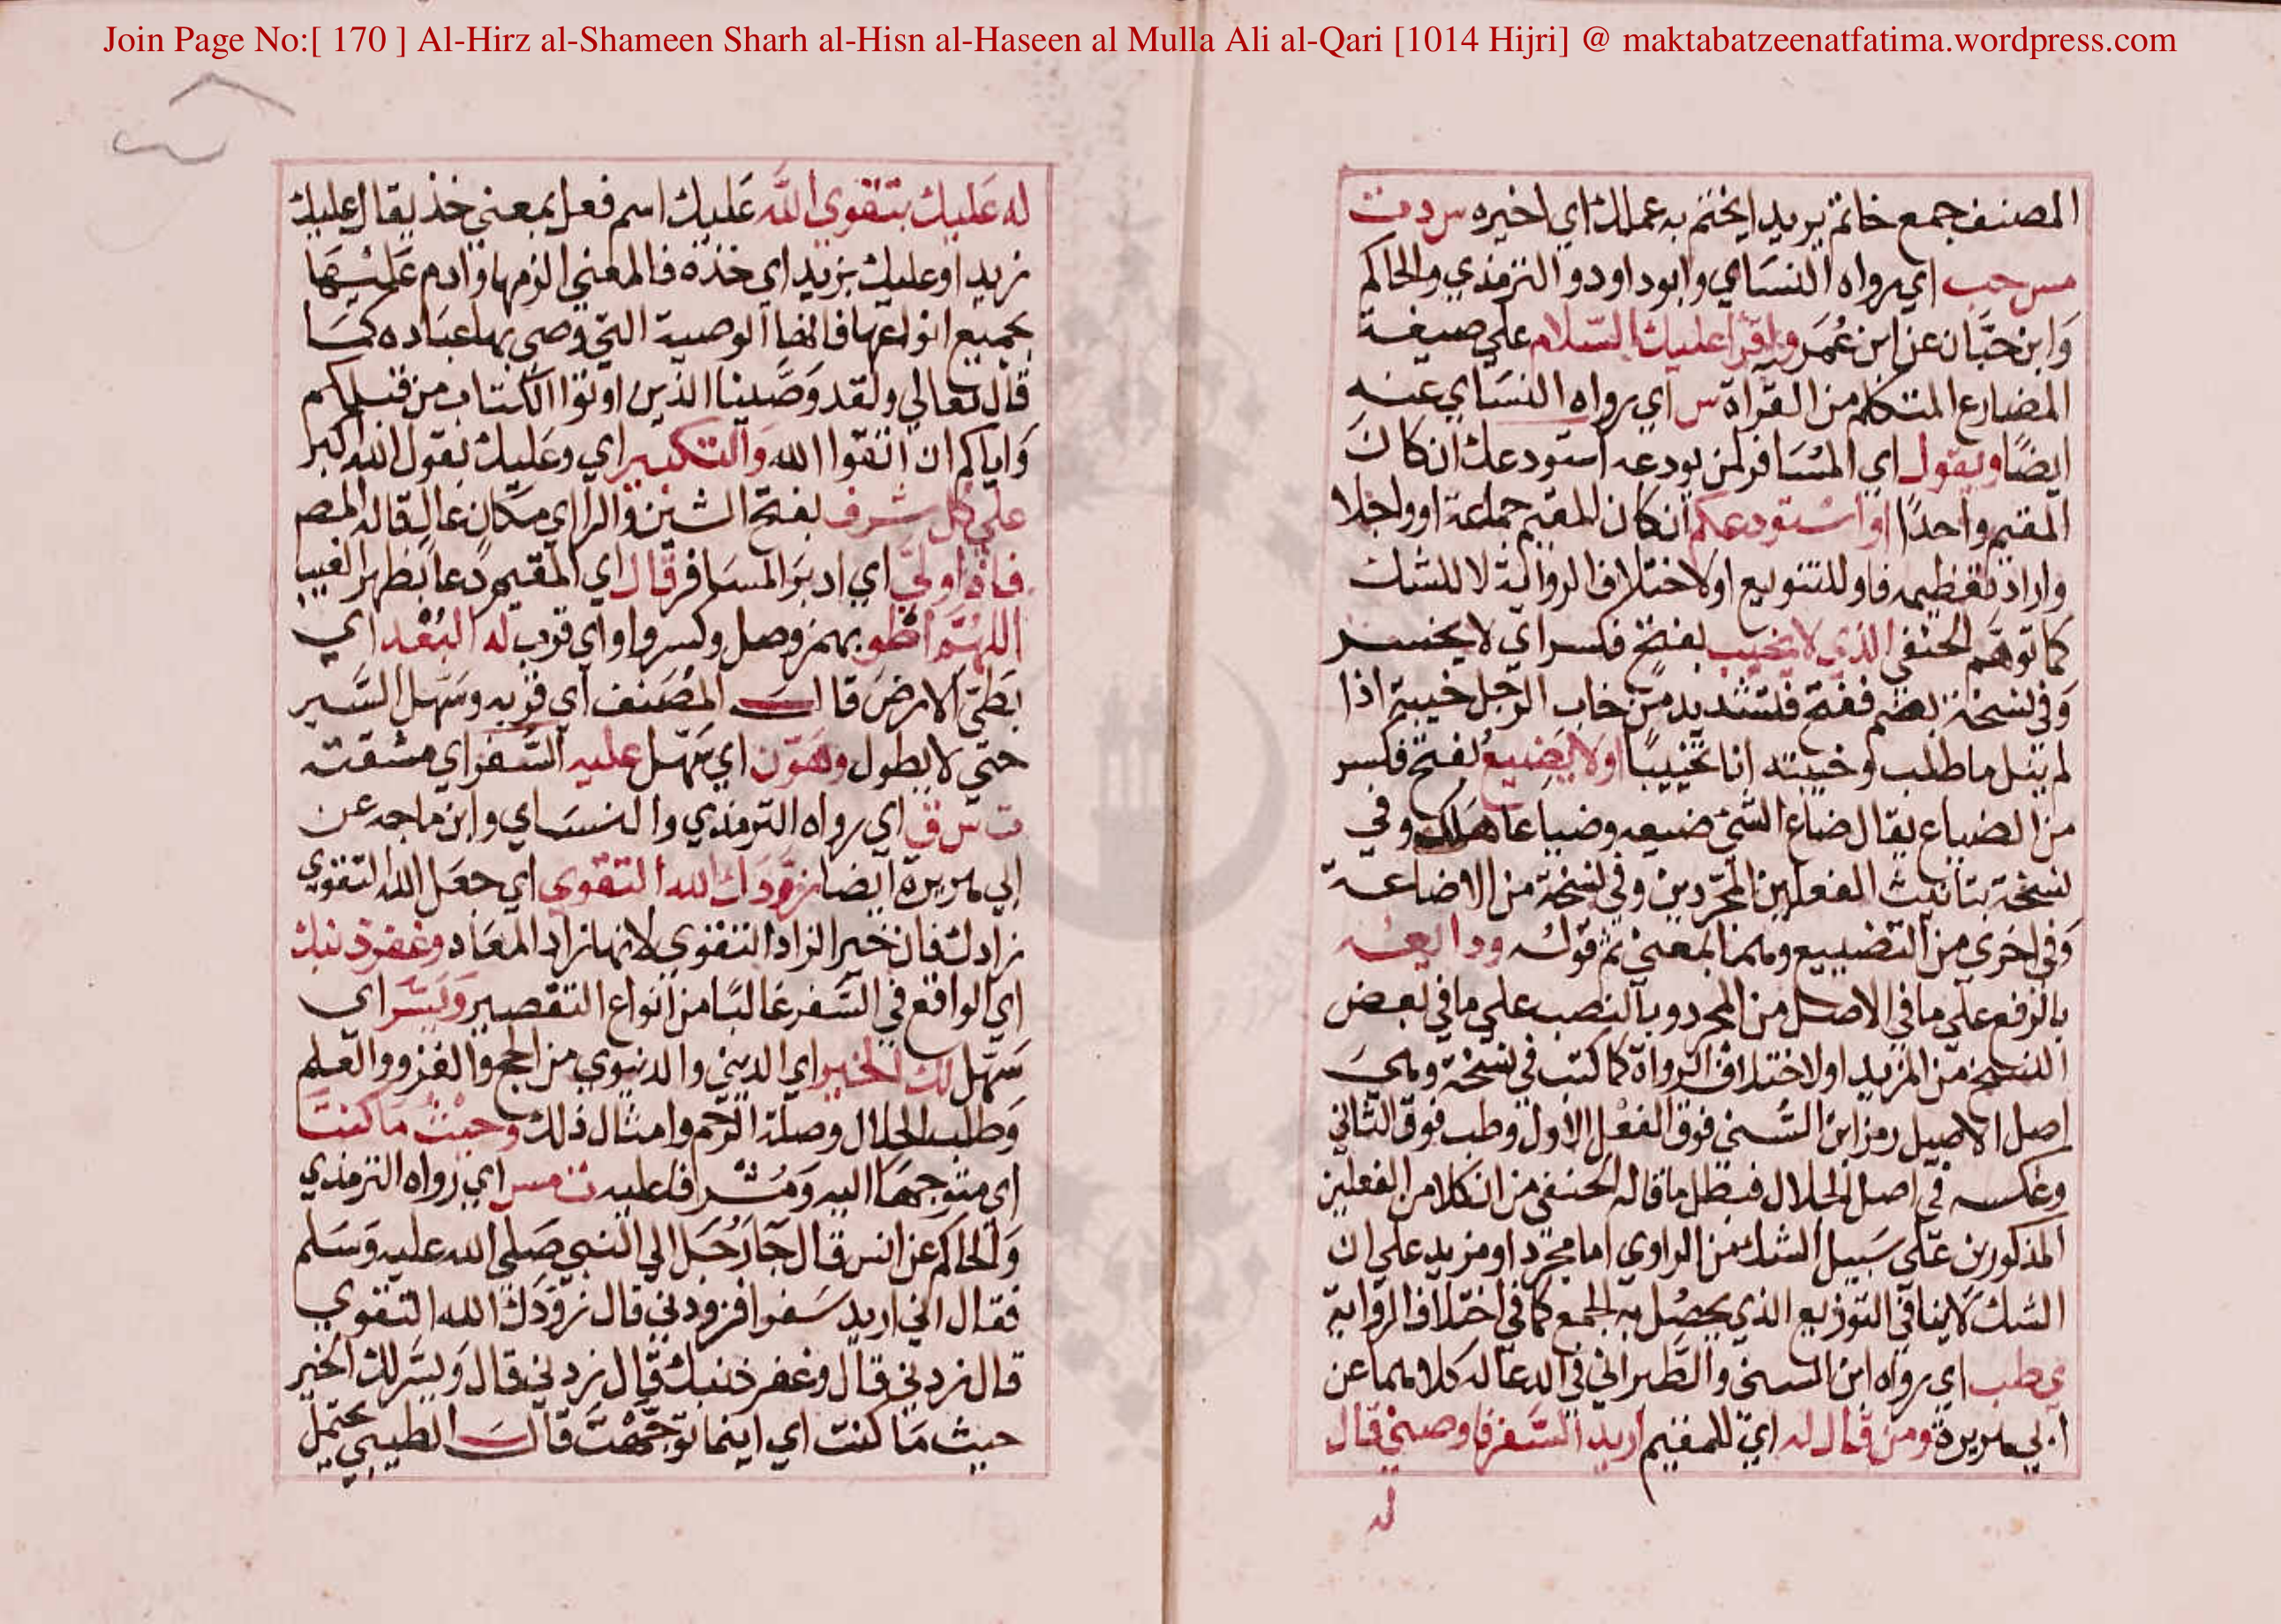 Join Page No:[ 170 ] Al-Hirz al-Shameen Sharh al-Hisn al-Haseen al Mulla Ali al-Qari [1014 Hijri] @ maktabatzeenatfatima.wordpress.com
المصنف جمع خاتم يريد ما يختم به عملك اي اخيره س د ت
مس حب اي رواه النساي وابو داود والترمذي والحاكم
وَابن حبَّان عن ابن عُمَر واقرا عليك السّلام علي صيغة
المضارع المتكلم من القراة س اي رواه النسَاي عنه
ايضًا ويقول اي المسَافر لمن يودعه استودعك ان كانَ
المقيم واحدًا او استودعكم ان كان المقيم جماعة او واحدا
واراد تعظيمه فاو للتنويع او لاختلاف الرواية لا للشك
كما توهّم الحنفي الذي لا تخيب بفتح فكسر اي لا يخسر
وَفي نسخة بضم ففتح فتشديد من خاب الرجل خيبة اذا
لم ينل ما طلب وخيبته انا تخييبًا او لا يَضِيعُ بفتح فكسر
من الضياع يقال ضاع الشئ ضيعه وضياعا هَلَك وفي
نسخة بتانيث الفعلين المجردين وفي نسخة من الاضاعة
وَفي اخري من التضييع وهما بمعني ثم قوله ودايعه
بالرفع علي ما في الاصل من المجرد وبالنصب علي ما في بعض
النسخ من المزيد او لاختلاف الرواة كما كتب في نسخة وهي
اصل الاصيل رمز ابن السُّني فوق الفعْل الاول وطب فوق الثاني
وعكسه في اصل الجلال فبطل ما قاله الحنفي من ان كلا من الفعلين
المذكورين عَلي سَبيل الشك من الراوي اما مجرد او مزيد علي ان
الشك لا ينافي التوزيع الذي يحصُل به الجمع كما في اختلاف الرواية
ي طب اي رواه ابن السني والطَّبراني في الدعا له كلاهما عن
ابي هريرة ومن قال له اي للمقيم اريد السَّفر فاوصني قال
له
له عَليك بتقوي اللَّه عَليك اسم فعل بمعني خذ يقال عليك
زيدا وعليك بزيد اي خذه فالمعني الزمها وادم عَليْهَا
بجميع انواعها فانها الوصية التي وصي بها عبَاده كمَا
قال تعالي ولقد وَصَّينا الذين اوتوا الكتاب من قبلكم
وَاياكم ان اتقوا الله وَالتكبير اي وعَليك بقول الله اكبر
علي كل شرف بفتح الشين والرا اي مكان عال قاله المصم
فاذا ولّي اي ادبرَ المسَافر قال اي المقيم دعا بظهر الغيب
اللهُمّ اطو بهمز وصل وكسر واو اي قرب له البُعْد اي
بطيّ الارض قال المُصَنف اي قربه وسَهّل السَّير
حتي لا يطول وهَوّن اي سَهّل عليه السَّفر اي مشقته
ت س ق اي رواه الترمذي والنسَاي وابن ماجه عن
ابي هريرة ايضا زوّدَك الله التقوي اي جعَل الله التقوي
زادك فان خير الزاد التقوي لانها زاد المعَاد وغفر ذنبك
اي الواقع في السَّفر غالبًا من انواع التقصير وَيَسَّر اي
سَهّل لك الخير اي الديني والدنيوي من الحج والغزو والعلم
وَطلب الحلال وصلة الرّحم وامثال ذلك وحيْثُ مَا كنتَ
اي متوجهَا اليه وَمُشْرفا عليه ت مس اي رواه الترمذي
وَالحاكم عن انس قال جَا رَجُل الي النبي صَلي الله عليه وَسَلم
فقال اني اريد سَفرا فزودني قال زوّدَك الله التقوي
قال زدني قال وغفر ذنبك قال زدني قال وَيسَّر لك الخير
حيث مَا كنت اي اينما توجَّهْتَ قال الطيبي يحتمل